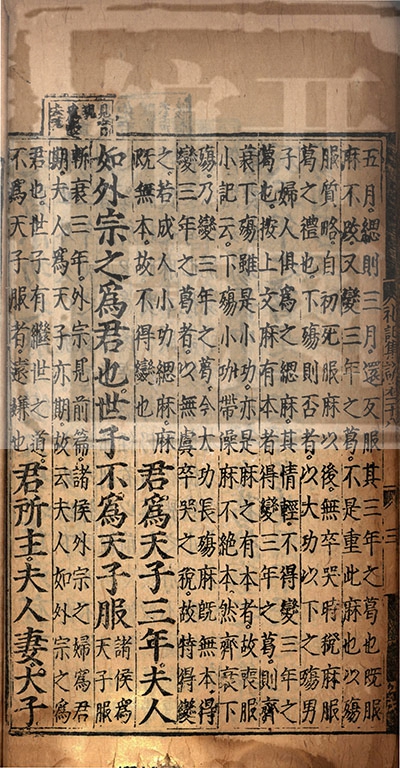 五月緦則三月還反服其三年之葛也既服
麻不改又變三年之葛不是重此麻也以殤
服質略自初死服麻以後無卒哭時稅麻服
葛之禮也下殤則否者以大功以下之殤男
子婦人俱爲之緦麻其情輕不得變三年之
葛也按上文麻有本者得變三年之葛則齊
衰下殤雖是小功亦是麻之有本者故喪服
小記云下殤小功帶澡麻不絕本然齊衰下
殤乃變三年之葛今大功長殤麻既無本得
變三年之葛者以無虞卒哭之稅故特得變
之若成人小功緦麻麻
既無本故不得變也
君爲天子三年夫人
如外宗之爲君也世子不爲天子服
諸侯爲
天子服
斬衰三年外宗見前篇諸侯外宗之婦爲君
期夫人爲天子亦期故云夫人如外宗之爲
君也世子有繼世之道
不爲天子服者遠嫌也
君所主夫人妻大子